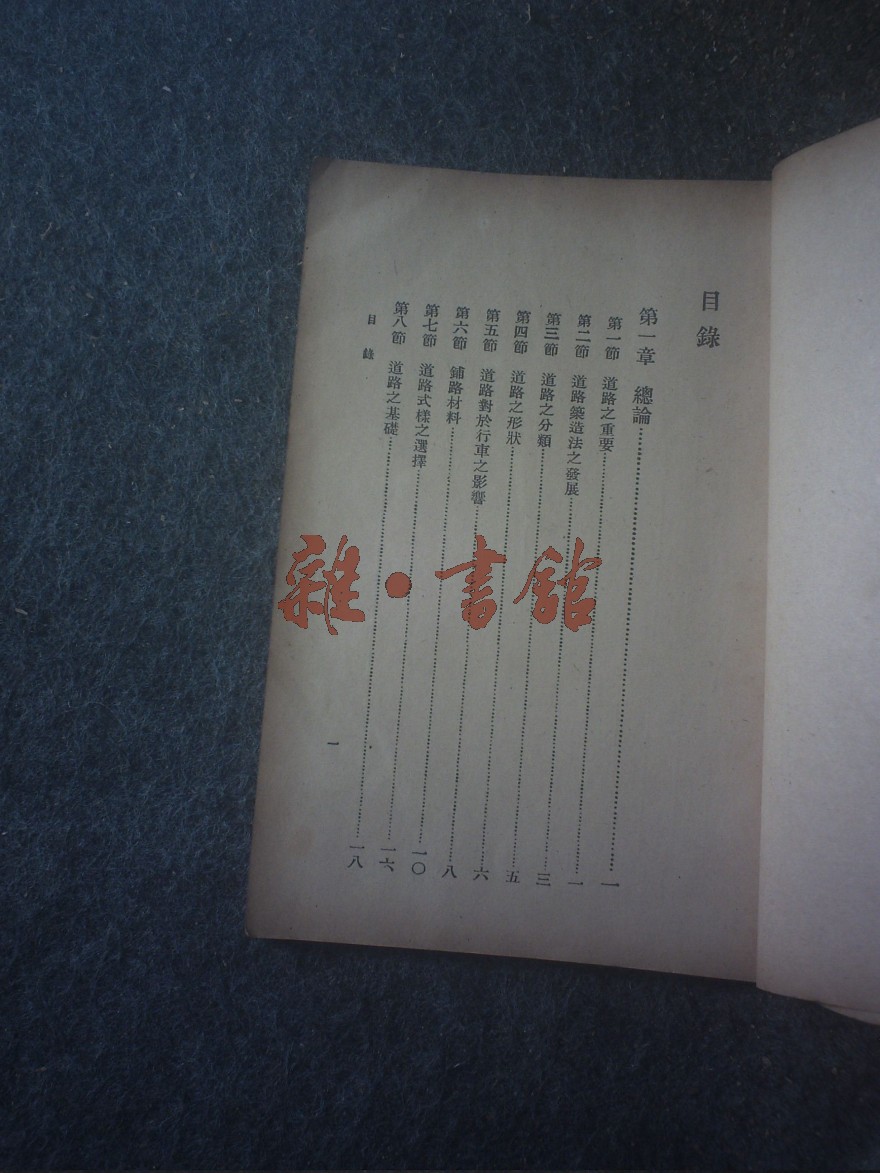 目錄
第一章 總論……一
第一節 道路之重要……一
第二節 道路築造法之發展……三
第三節 道路之分類……五
第四節 道路之形狀……六
第五節 道路對於行車之影響……八
第六節 鋪路材料……一〇
第七節 道路式樣之選擇……一六
第八節 道路之基礎……一八
目錄
一
雜・書館